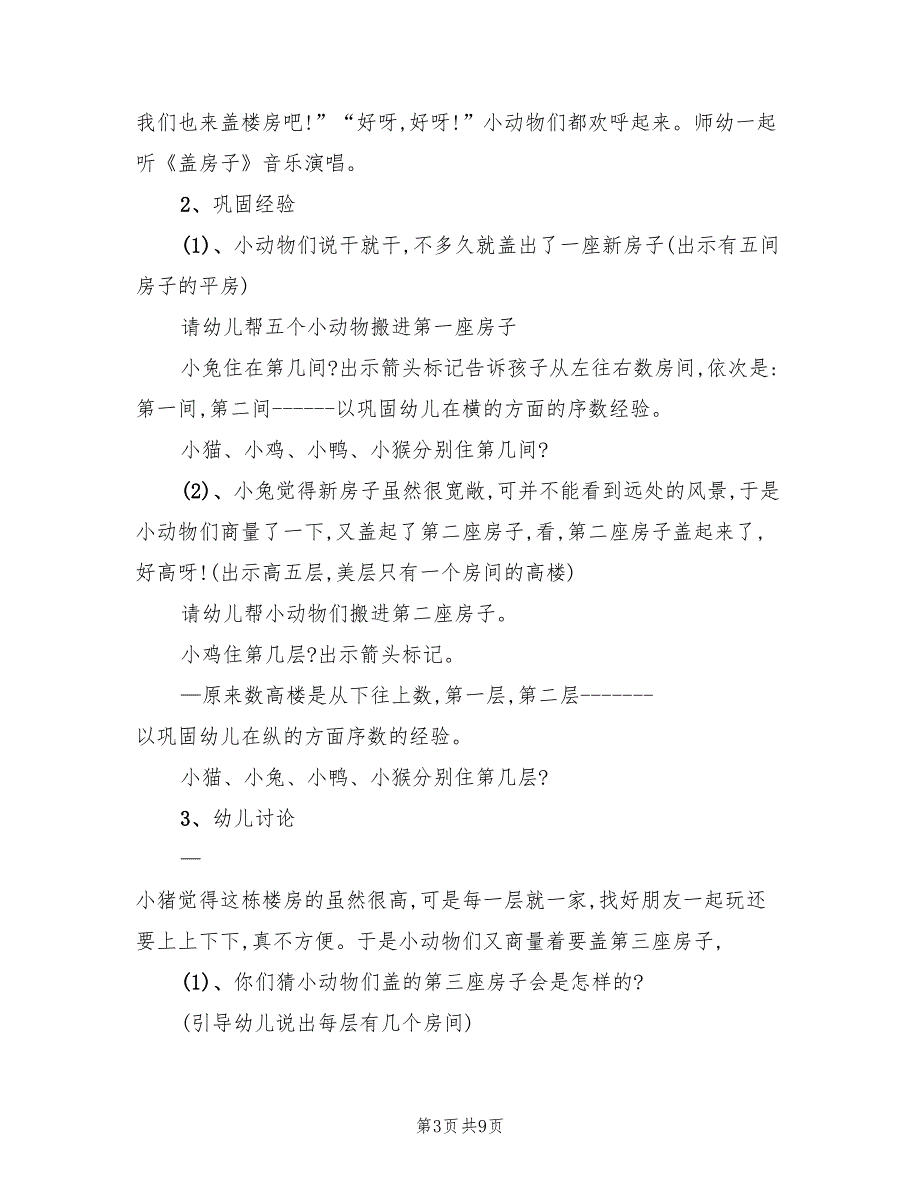 我们也来盖楼房吧!”“好呀,好呀!”小动物们都欢呼起来。师幼一起
听《盖房子》音乐演唱。
2、巩固经验
(1)、小动物们说干就干,不多久就盖出了一座新房子(出示有五间
房子的平房)
请幼儿帮五个小动物搬进第一座房子
小兔住在第几间?出示箭头标记告诉孩子从左往右数房间,依次是:
第一间,第二间------以巩固幼儿在横的方面的序数经验。
小猫、小鸡、小鸭、小猴分别住第几间?
(2)、小兔觉得新房子虽然很宽敞,可并不能看到远处的风景,于是
小动物们商量了一下,又盖起了第二座房子,看,第二座房子盖起来了,
好高呀!(出示高五层,美层只有一个房间的高楼)
请幼儿帮小动物们搬进第二座房子。
小鸡住第几层?出示箭头标记。
—原来数高楼是从下往上数,第一层,第二层-------
以巩固幼儿在纵的方面序数的经验。
小猫、小兔、小鸭、小猴分别住第几层?
3、幼儿讨论
—
小猪觉得这栋楼房的虽然很高,可是每一层就一家,找好朋友一起玩还
要上上下下,真不方便。于是小动物们又商量着要盖第三座房子,
(1)、你们猜小动物们盖的第三座房子会是怎样的?
(引导幼儿说出每层有几个房间)
第3页 共9页